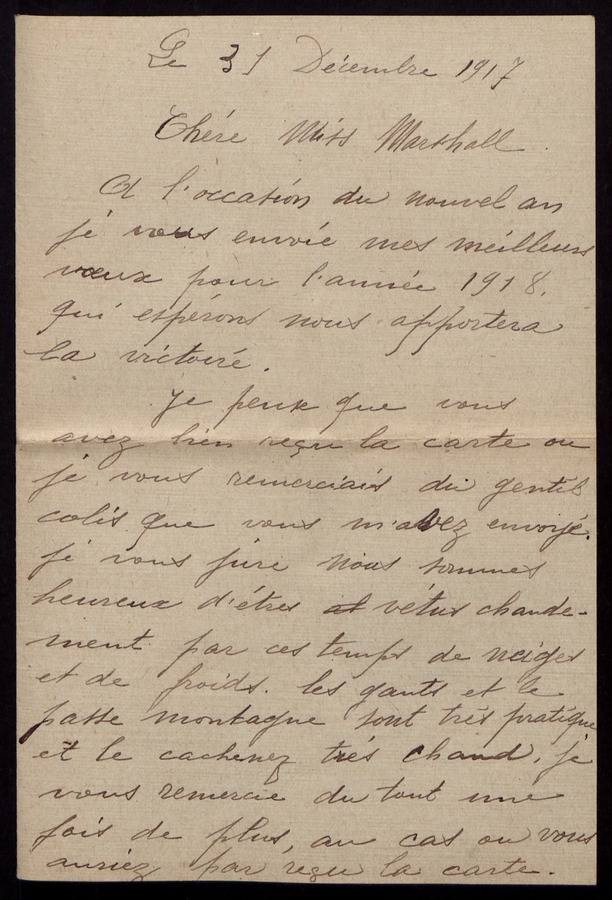 Le 31 Décembre 1917
Chére Miss Marshall
A l'occasion du nouvel an
je vous envoie mes meilleurs
vœux pour l'année 1918.
qui espérons nous apportera
la victoire.
Je pense que vous
avez bien reçu la carte ou
je vous remerciais du gentil
colis que vous m'avez envoyé.
je vous jure nous sommes
heureux d'étres et vétus chaude-
ment par ces temps de neiges
et de froids. les gants et le
passe montagne sont trés pratique
et le cachenez trés chaud. je
vous remercie du tout une
fois de plus, au cas ou vous
auriez pas reçu la carte.